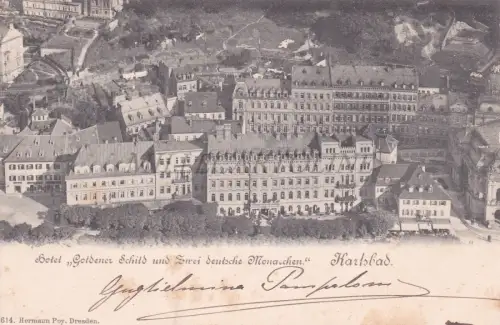 Hotel „Goldener Schild und Zwei deutsche Monarchen." Karlsbad.
Guglielmina Pampaloni
614. Hermann Poy, Dresden.